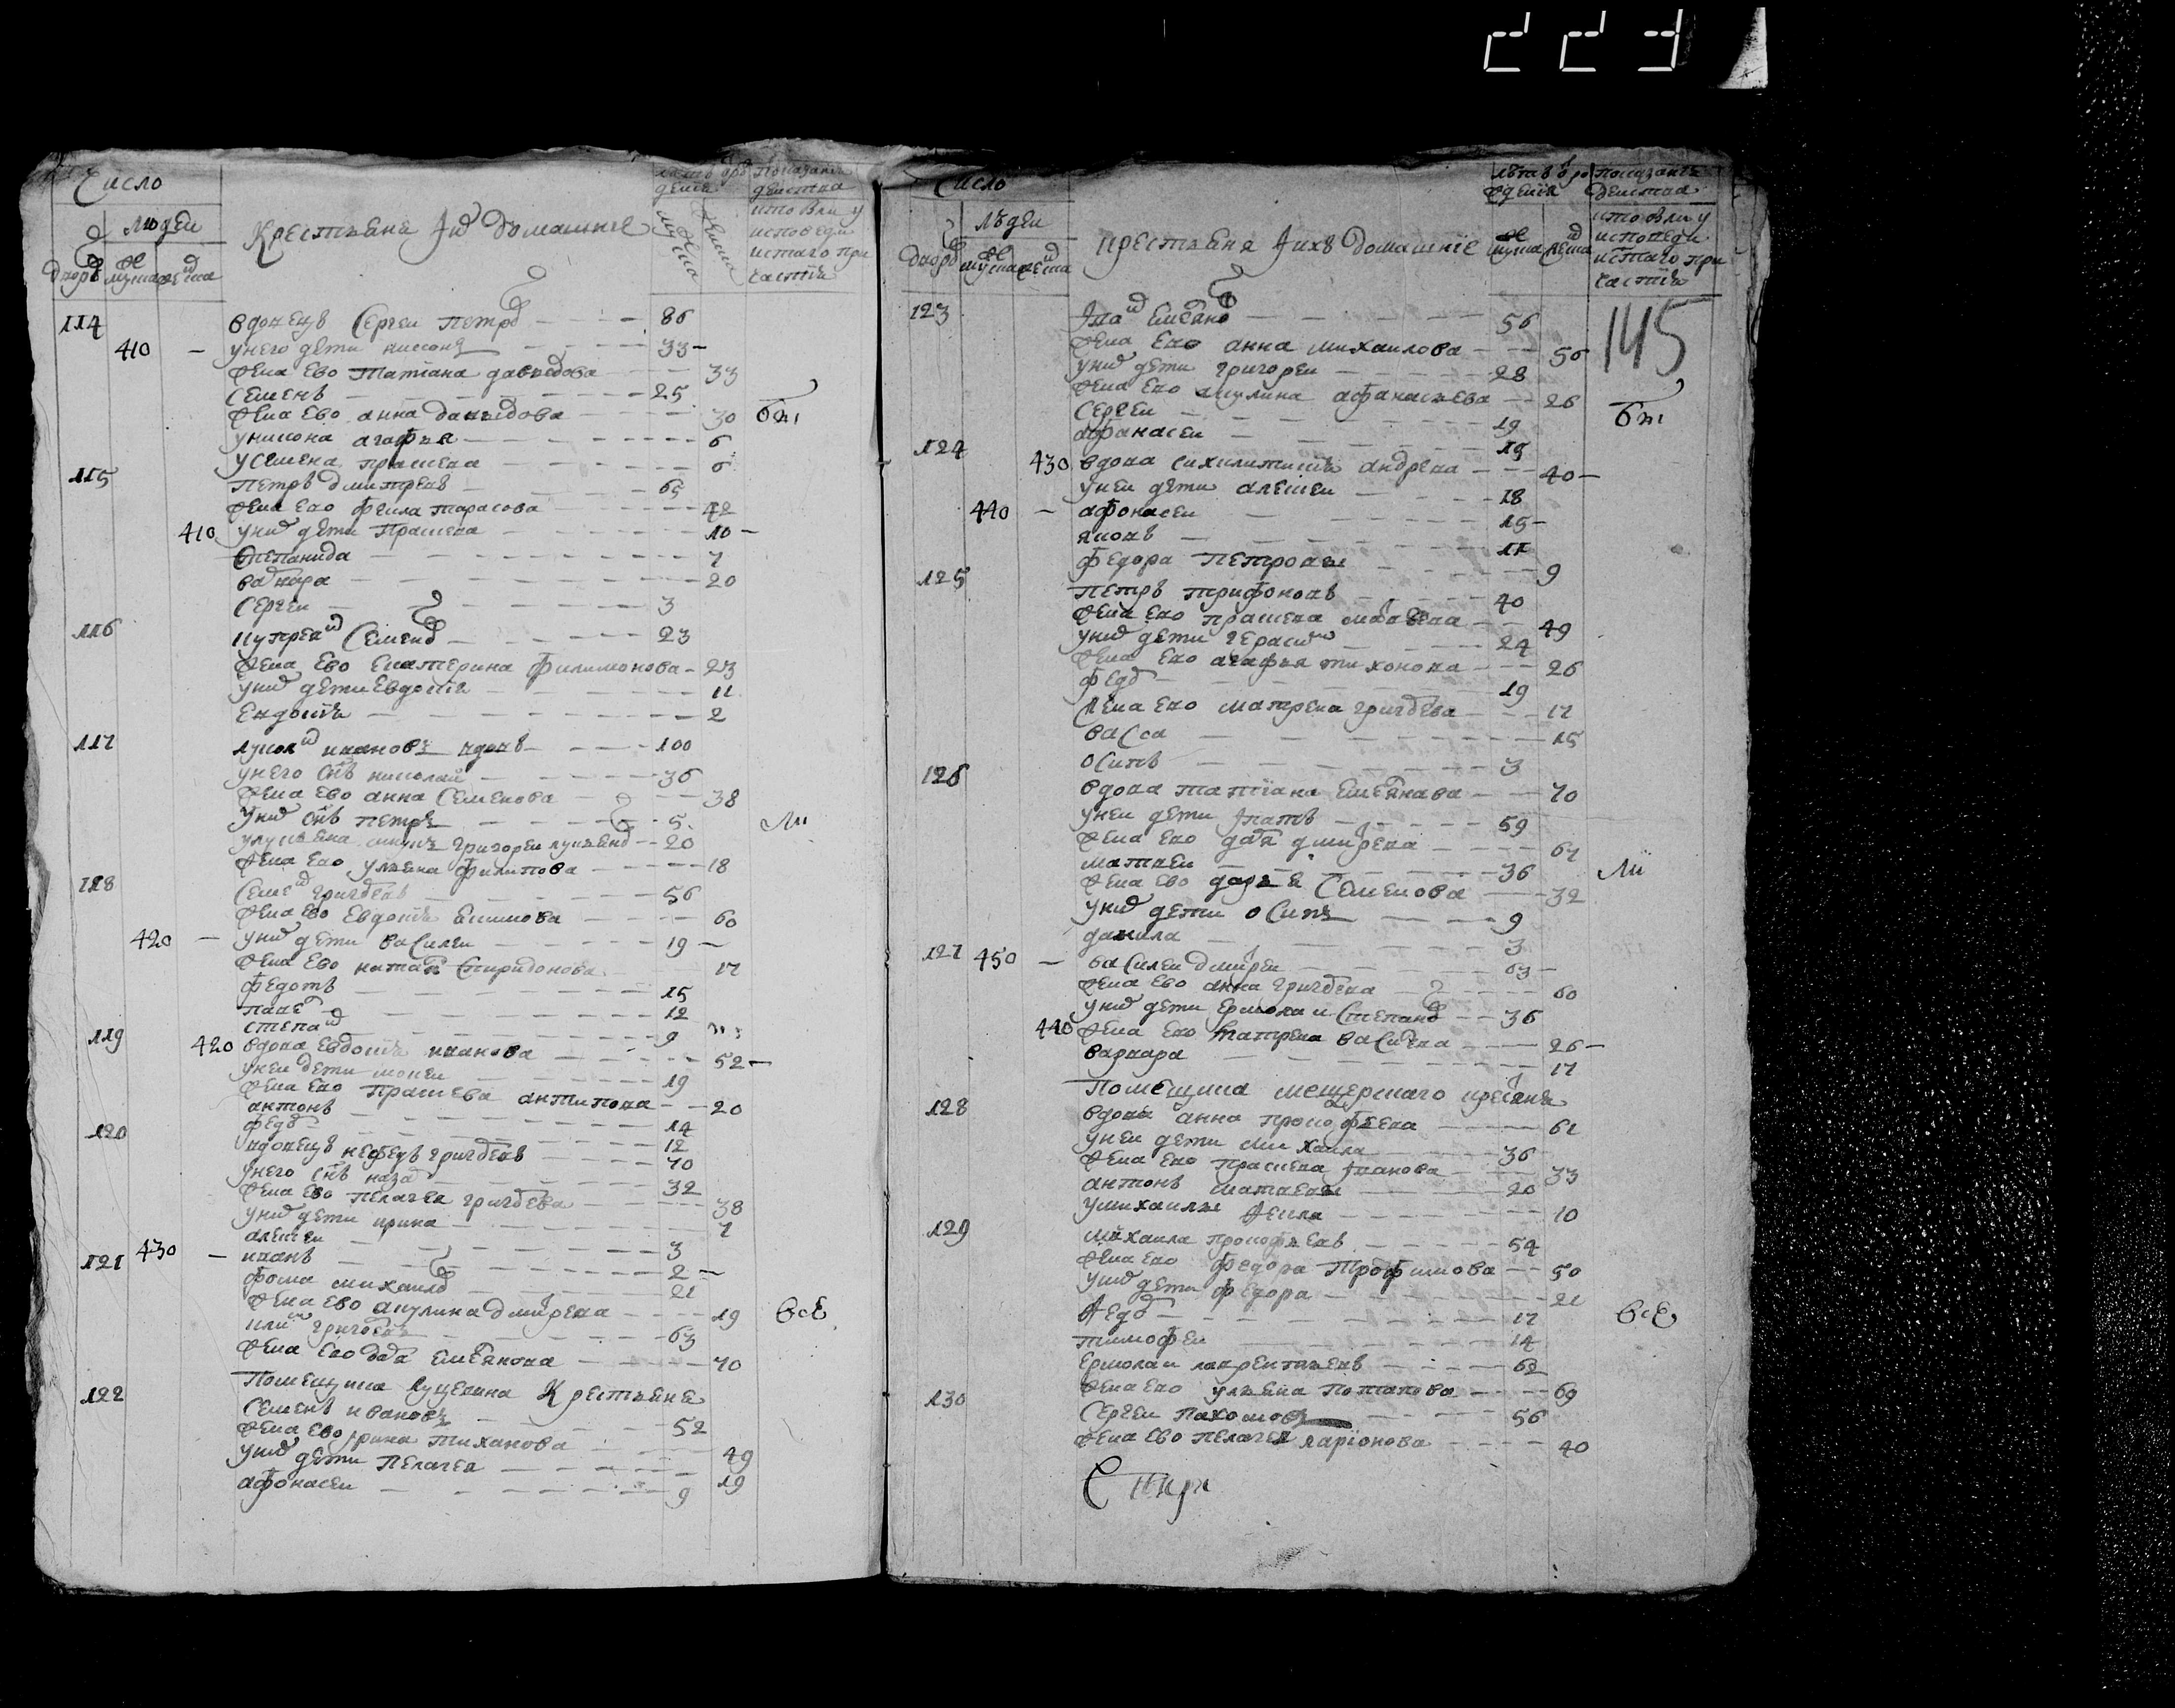 223
Число
Людей
дворъ мужска женска
Крестьяне и их домашние
лѣтъ от рождения
мужска
женска
Показание
действа
кто был у
исповеди
и святаго при
частия
114 вдовецъ Сергеи Петров 86
410 у него дети никонъ 33
жена ево Татиана давыдова 33
Семенъ 25
жена ево анна давыдова 30
были
у никона агафья 6
у семена прасковя 6
115 Петръ дмитревъ 65
жена ево фекла тарасова 42
410 у них дети Прасковя 10
Степанида 7
варвара 20
Сергеи 3
116 куприан Семенов 23
жена ево Екатерина филимонова 23
у них дети Евдокия 11
Евдокия 2
117 лукян ивановъ вдовъ 100
у него снъ николаи 36
жена ево анна Семенова 38
у них снъ петръ 5
у лукьяна внукъ григореи лукьянов 20
ли
жена ево ульяна филипова 18
118 Семен григоревъ 56
жена ево Евдокия Екимова 60
420 у них дети василеи 19
жена ево наталя спиридонова 17
федотъ 15
павел 12
степан 9
119 420 вдова евдокия иванова 52
у неи дети мокеи 19
жена ево прасковя антипова 20
антонъ 14
федор 12
120 вдовецъ нефедъ григоревъ 70
у него снъ назар 32
жена ево пелагея григорева 38
у них дети ирина 7
алексеи 3
430 иванъ 2
121 фома михаилов 21
жена ево акулина дмитрева 19
все
илия григоревъ 63
жена ево дарья емельянова 70
Помещика Луцевина Крестьяне
122 Семенъ ивановъ 52
жена ево ирина тиханова 49
у них дети пелагея 19
афонасеи 9
Число
людеи
дворъ мужска женска
крестьяня и ихъ домашние
лѣтъ от рождения
мужска женска
показание
действа
кто были у
исповеди
и святаго при
частия
145
123 Иван Емельянов 56
жена ево анна михаилова 56
у них дети григореи 28
жена ево акулина афанасьева 26
были
Сергеи 19
афанасеи 15
124 430 вдова андреева 40
у неи дети алексеи 18
440 афонасеи 15
яковъ 11
федора петрова 9
125 петръ трифоновъ 40
жена ево прасковя савельева 49
у них дети герасим 24
жена ево агафья тихонова 26
федор 19
жена ево матрена григорева 17
васса 15
осипъ 3
126 вдова татиана емельянава 70
у неи дети Ипатъ 59
жена ево дарья дмитрева 67
матвеи 36
ли
жена ево дарья Семенова 32
у них дети осипъ 9
данила 3
127 450 василеи дмитреи 63
жена ево анна григорева 60
у них дети ермола и степанов 36
440 жена ево матрена василева 26
варвара 17
Помещика мещерскаго крестьяня
128 вдова анна прокофьева 61
у неи дети михаила 36
жена ево прасковя иванова 33
антонъ матвеевъ 20
у михаилы фекла 10
129 михаила прокофьевъ 54
жена ево федора трофимова 50
у них дети федора 21
федор 17
все
тимофеи 14
ермолаи лаврентьевъ 62
жена ево ульяна потапова 69
130 Сергеи пахомовъ 56
жена ево пелагея ларионова 40